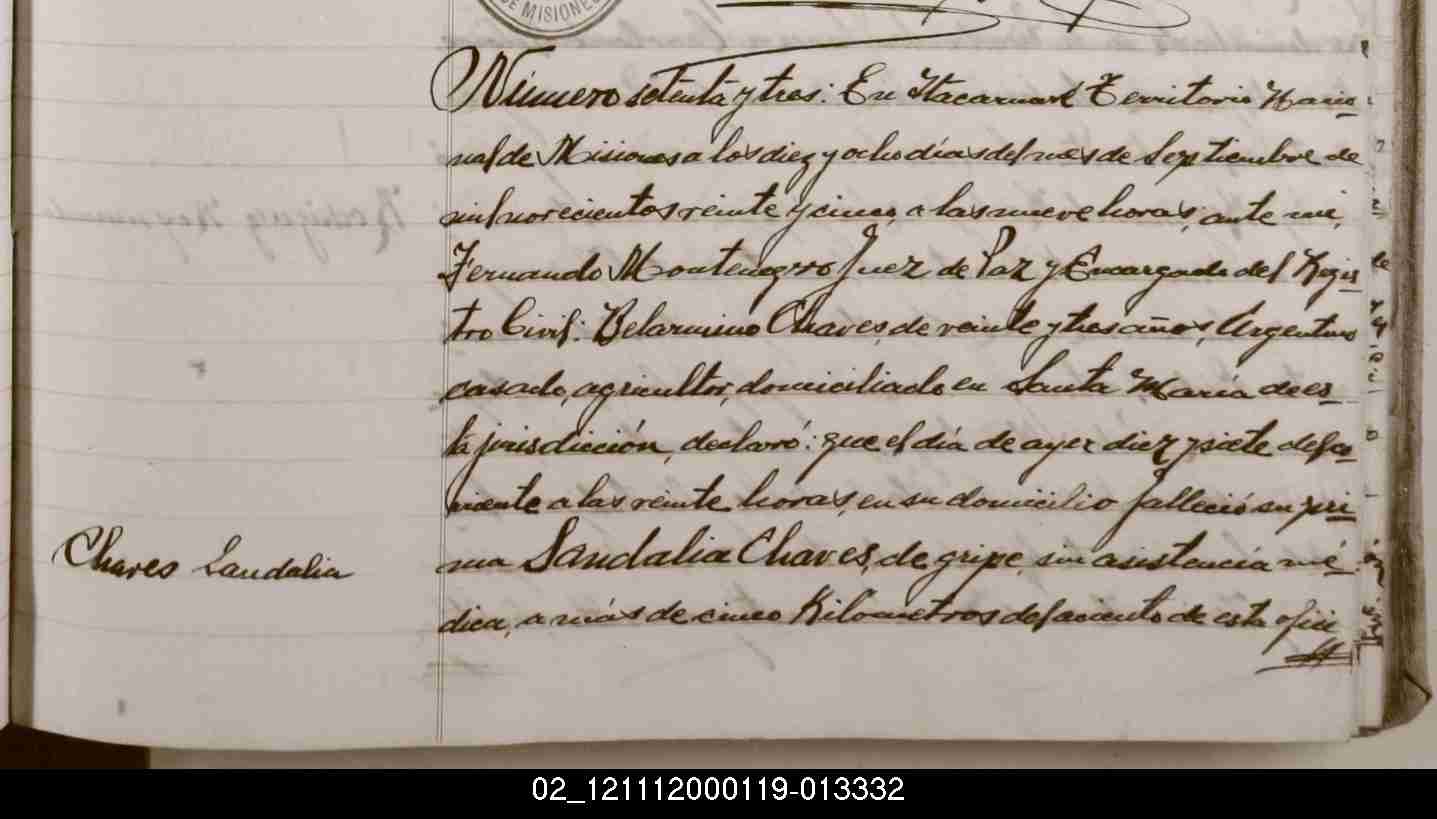 DE MISIONES
Número setenta y tres: En Itacaruaré Territorio Nacio-
nal de Misiones a los diez y ocho días del mes de Septiembre de
mil novecientos veinte y cinco, a las nueve horas, ante mi,
Fernando Montenegro Juez de Paz y Encargado del Regis
tro Civil: Belarmino Chaves, de veinte y tres años, Argentino
casado, agricultor, domiciliado en Santa María de es
ta jurisdicción, declaró: que el día de ayer diez y siete del co-
rriente a las veinte horas, en su domicilio falleció su pri
Chaves Sandalia
ma Sandalia Chaves, de gripe, sin asistencia mé-
dica, a más de cinco Kilometros del asiento de esta ofici
02_121112000119-013332